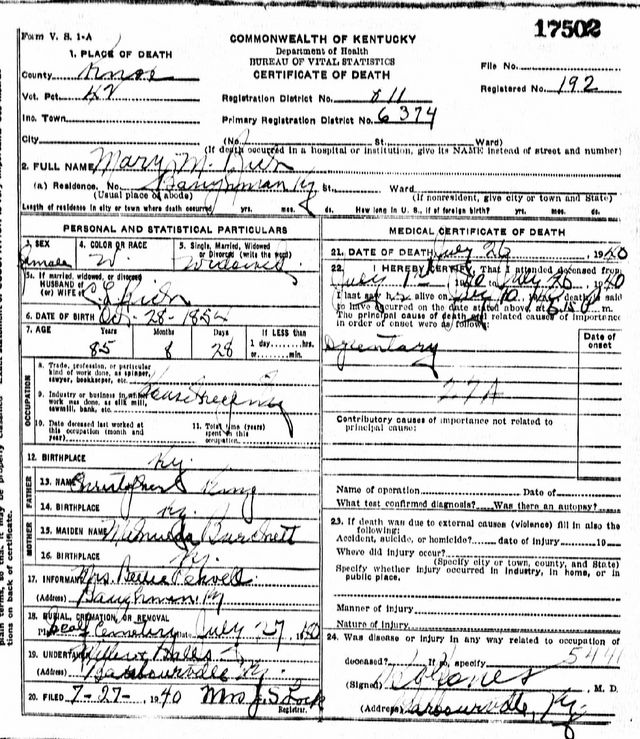 17502
Form V. S. 1-A
COMMONWEALTH OF KENTUCKY
Department of Health
BUREAU OF VITAL STATISTICS
CERTIFICATE OF DEATH
1. PLACE OF DEATH
County Knox
File No.
Vot. Pct. 42
Registration District No. 811
Registered No. 192
Inc. Town
Primary Registration District No. 6374
City (No. St. Ward)
(If death occurred in a hospital or institution, give its NAME instead of street and number)
2. FULL NAME Mary M.
(a) Residence. No. Baughman Ky St. Ward
(Usual place of abode) (If nonresident, give city or town and State)
Length of residence in city or town where death occurred yrs. mos. ds. How long in U. S., if of foreign birth? yrs. mos. ds.
PERSONAL AND STATISTICAL PARTICULARS
3. SEX 4. COLOR OR RACE 5. Single, Married, Widowed or Divorced (write the word)
Female W. Widowed
5a. If married, widowed, or divorced
HUSBAND of
(or) WIFE of
6. DATE OF BIRTH Oct. 28-1854
7. AGE Years Months Days If LESS than
1 day, hrs.
or min.
85 8 28
OCCUPATION
8. Trade, profession, or particular kind of work done, as spinner, sawyer, bookkeeper, etc.
9. Industry or business in which work was done, as silk mill, sawmill, bank, etc.
House Keeping
10. Date deceased last worked at this occupation (month and year)
11. Total time (years) spent in this occupation
12. BIRTHPLACE Ky.
FATHER
13. NAME Christopher King
14. BIRTHPLACE Ky.
MOTHER
15. MAIDEN NAME Burdnett
16. BIRTHPLACE Ky.
17. INFORMANT Mrs.
(Address) Baughman Ky
18. BURIAL, CREMATION, OR REMOVAL
Place Cemetery Date July-27, 1940
19. UNDERTAKER
Barbourville Ky.
20. FILED 7-27-, 1940 Mrs J. S. Lock
Registrar.
MEDICAL CERTIFICATE OF DEATH
21. DATE OF DEATH July 26, 1940
22. I HEREBY CERTIFY, That I attended deceased from
July 1- 1940 to July 26, 1940
I last saw h alive on 19, death is said
to have occurred on the date stated above, at m.
The principal cause of death and related causes of importance
in order of onset were as follows:
Date of onset
Dysentary
27A
Contributory causes of importance not related to
principal cause:
Name of operation Date of
What test confirmed diagnosis? Was there an autopsy?
23. If death was due to external causes (violence) fill in also the
following:
Accident, suicide, or homicide? date of injury 19
Where did injury occur?
(Specify city or town, county, and State)
Specify whether injury occurred in industry, in home, or in
public place.
Manner of injury
Nature of injury
24. Was disease or injury in any way related to occupation of
deceased? If so, specify
(Signed) Jones, M. D.
(Address) Barbourville, Ky.
plain terms, so that it may be properly classified
tions on back of certificate.